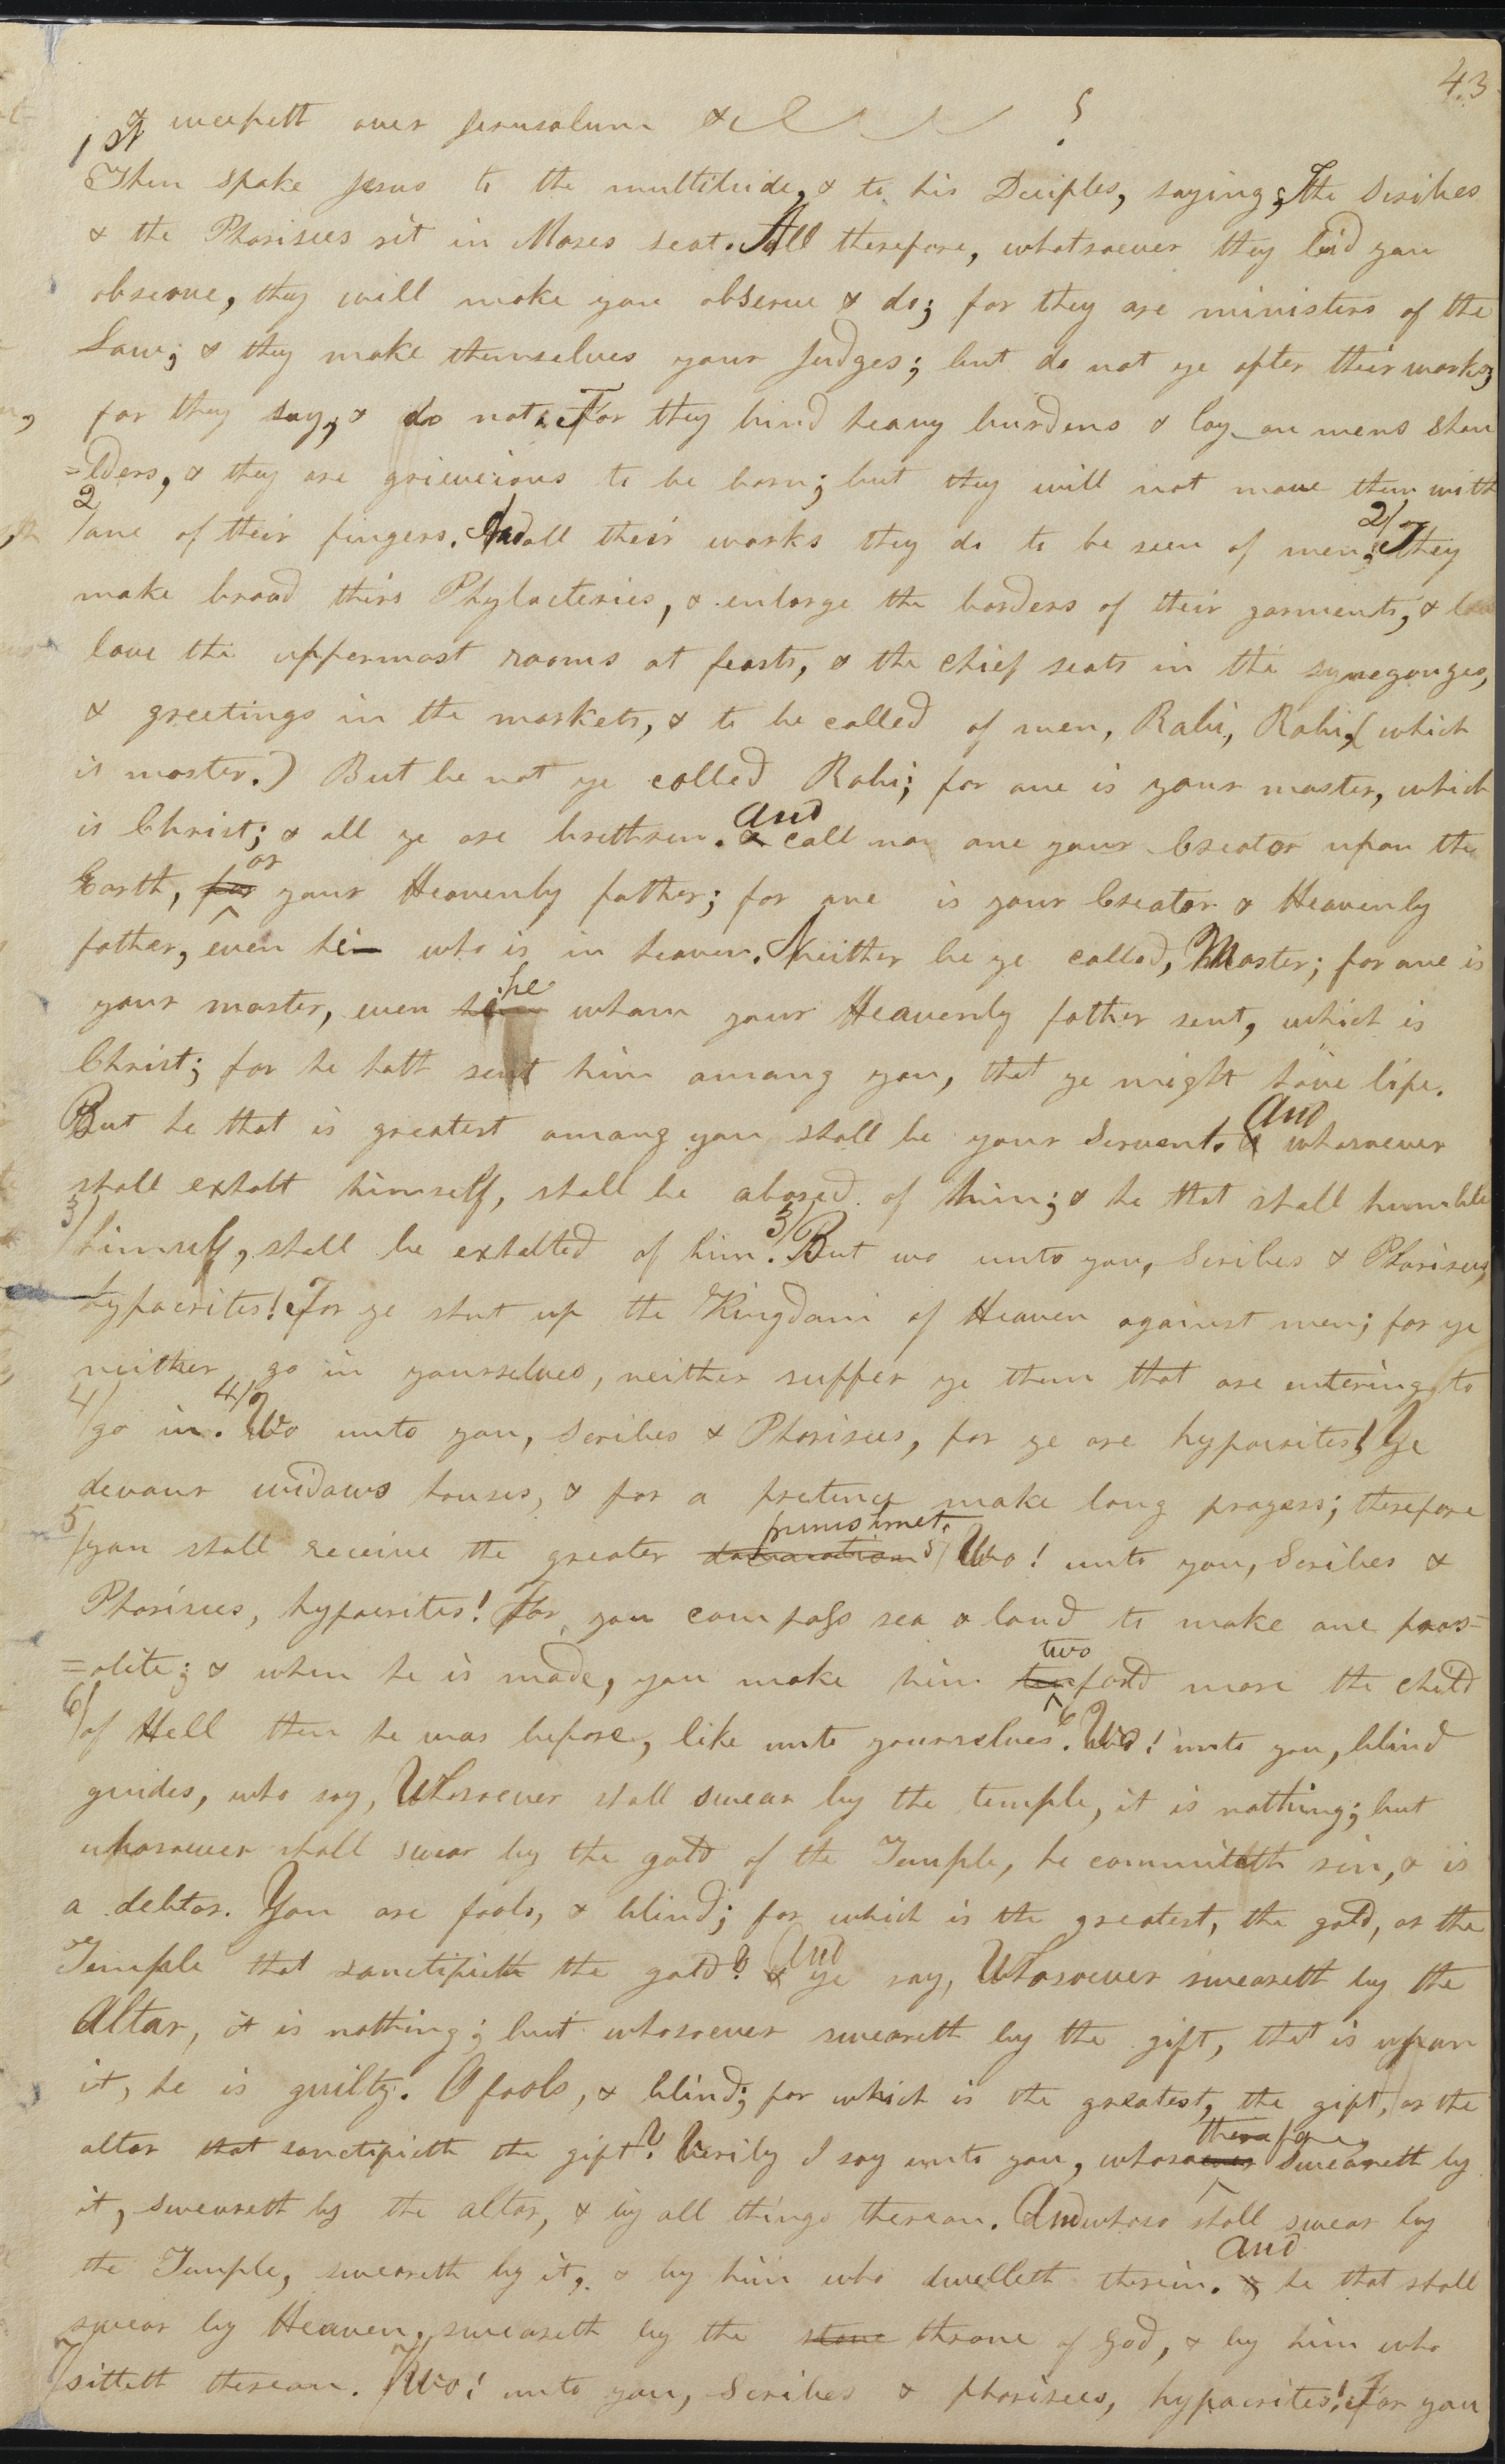 43
& weepeth over Jerusalum &c
1 Then spake Jesus to the multitude, & to his Deciples, saying; The Scribes
& the Pharisees sit in Moses seat. All therefore, whatsoever they bid you
observe, they will make you observe & do; for they are ministers of the
Law; & they make themselves your Judges; but do not ye after their works;
for they say, & do not. For they bind heavy burdens & lay on mens shou
=lders, & they are grieveious to be born; but they will not move them with
2/ one of their fingers. And all their works they do to be seen of men. 2/ They
make broad thirs Phylacteries, & enlarge the borders of their garments, &
love the uppermost rooms at feasts, & the chief seats in the synegouges,
& greetings in the markets, & to be called of men, Rabi, Rabi, (which
is master.) But be not ye called Rabi; for one is your master, which
is Christ; & all ye are brethren. & and call no one your Creator upon the
Earth, for or your Heavenly father; for one is your Creator & Heavenly
father, even he who is in heaven. Neither be ye called, Master; for one is
your master, even him he whom your Heavenly father sent, which is
Christ; for he hath sent him among you, that ye might have life.
But he that is greatest among you shall be your Servent. & And whosoever
shall exhalt himself, shall be abased of him; & he that shall humble
3/ himself, shall be exhalted of him. 3/ But wo unto you, Scribes & Pharisees,
hypocrites! For ye shut up the Kingdom of Heaven against men; for ye
neither go in yourselves, neither suffer ye them that are entering, to
4/ go in. 4/ Wo unto you, Scribes & Pharisees, for ye are hypocrites! Ye
devour widows houses, & for a pretence make long prayers; therefore
5/ you shall receive the greater damnation punishmet. 5/ Wo! unto you, Scribes &
Pharisees, hypocrites! For you compass sea & land to make one pros-
=olite; & when he is made, you make him ten two fold more the child
6/ of Hell then he was before, like unto yourselves. 6 Wo! unto you, blind
guides, who say, Whosoever shall swear by the temple, it is nothing; but
whosoever shall swear by the gold of the Temple, he committeth sin, & is
a debtor. You are fools, & blind; for which is the greatest, the gold, or the
Temple that sanctifieth the gold? & And ye say, Whosoever sweareth by the
Altar, it is nothing; but whosoever sweareth by the gift, that is upon
it, he is guilty. O fools, & blind; for which is the greatest, the gift, or the
altar that sanctifieth the gift? Verily I say unto you, whosoever therefore sweareth by
it, sweareth by the altar, & by all things thereon. And whoso shall swear by
the Temple, sweareth by it, & by him who dwelleth therein. & And he that shall
swear by Heaven, sweareth by the stone throne of God, & by him who
7/ sitteth thereon. 7/ Wo! unto you, Scribes & pharisees, hypocrites! For you